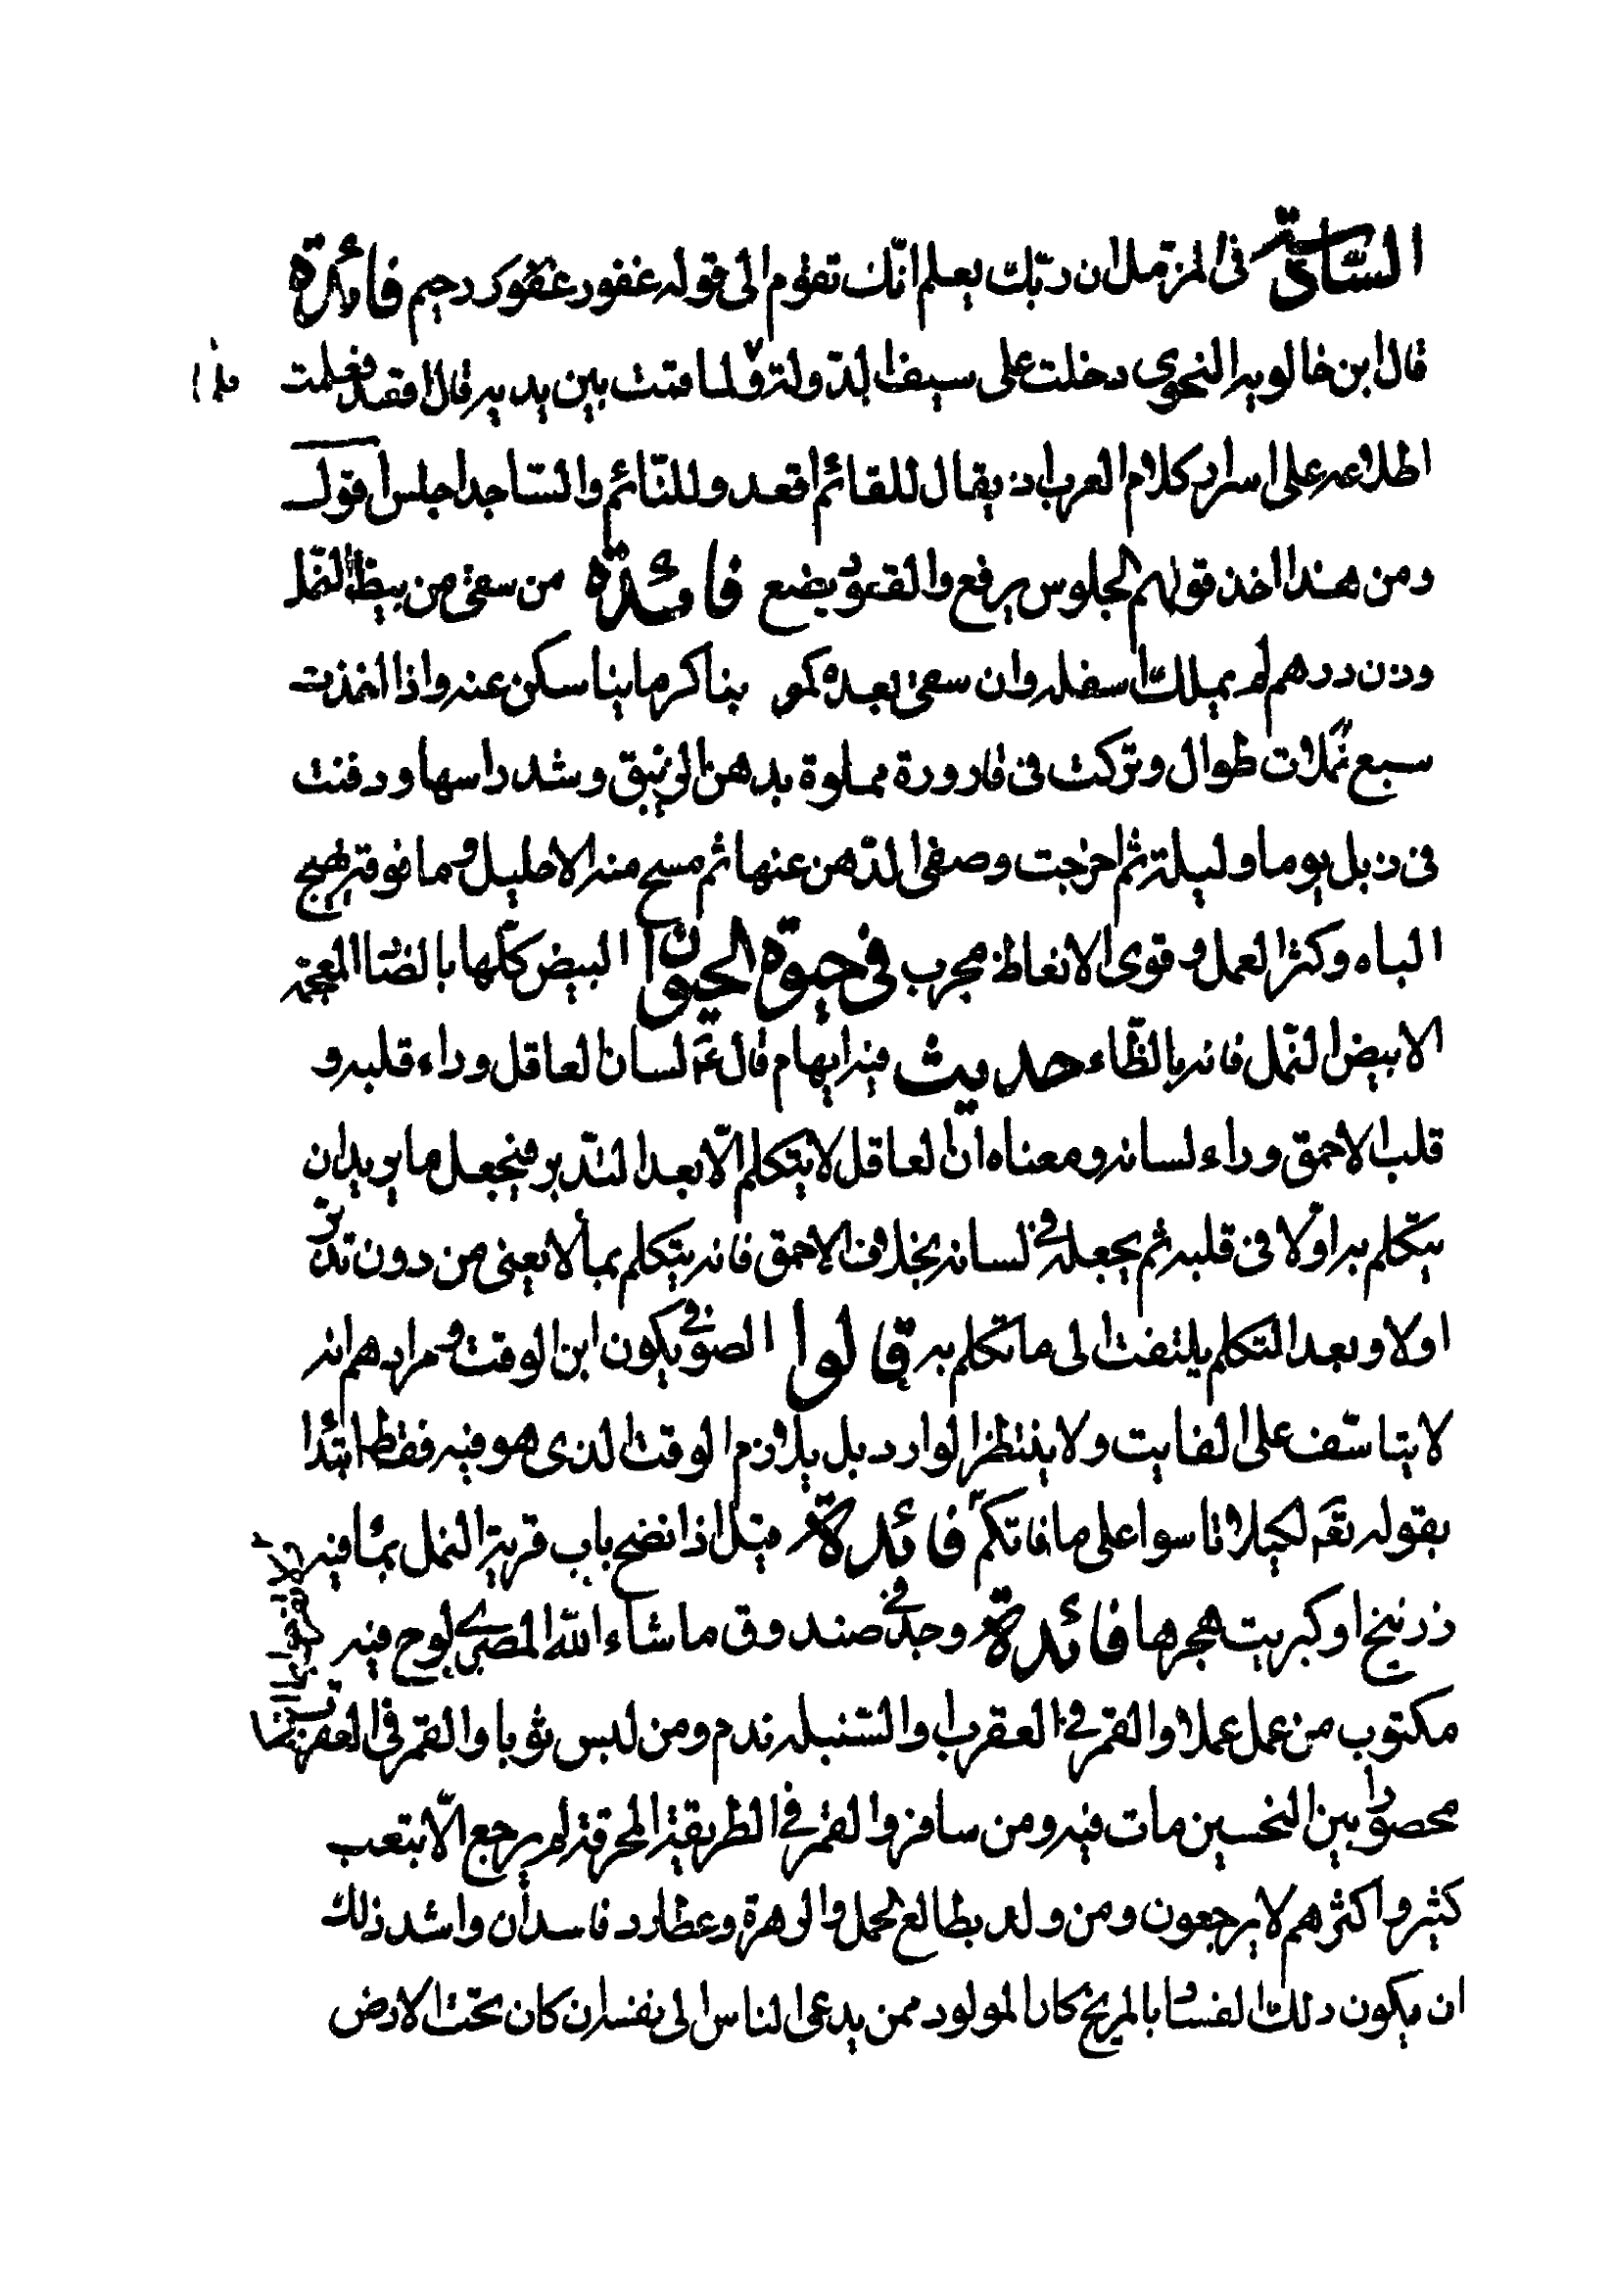 السادسة فى المزمل ان ربك يعلم انك تقوم الى قوله غفور رحيم فائدة
قال ابن خالويه النحوى دخلت على سيف الدولة ولما قمت بين يديه قال اقعد فعلمت
اطلاعه على اسرار كلام العرب اذ يقال للقائم اقعد وللنائم والساجد اجلس اقول
ومن هذا اخذ قولهم الجلوس يرفع والقعود يضع فائدة من سقى من بيظ النمل
وزن درهم لم يملك اسفله وان سقى بعده كمو بناكرمابنا سكن عنه واذا اخذت
سبع نملات طوال وتركت فى قارورة مملوة بدهن الزنبق وشد راسها ودفنت
فى زبل يوما وليلة ثم اخرجت وصفى الدهن عنها ثم مسح منه الاحليل وما فوقه هيج
الباه وكثر العمل وقوى الانعاظ مجرب فى حيوة الحيوان البيض كلها بالضاد المعجمة
الا بيض النمل فانه بالظاء حديث فيه ايهام قال ع لسان العاقل وراء قلبه و
قلب الاحمق وراء لسانه ومعناه ان العاقل لا يتكلم الا بعد التدبر فيجعل ما يريد ان
يتكلم به اولا فى قلبه ثم يجعله فى لسانه بخلاف الاحمق فانه يتكلم بما لا يعنى من دون تدبر
اولا وبعد التكلم يلتفت الى ما تكلم به قالوا الصوفى يكون ابن الوقت ومرادهم انه
لا يتاسف على الفايت ولا ينتظر الوارد بل يلازم الوقت الذى هو فيه فقط ابتدا
بقوله تعه لكيلا تاسوا على ما فاتكم فائدة قيل اذا نضح باب قرية النمل بماء فيه
زرنيخ او كبريت هجرها فائدة وجد فى صندوق ما شاء الله المصرى لوح فيه
مكتوب من عمل عملا والقمر فى العقرب او السنبله ندم ومن لبس ثوبا والقمر فى العقرب
محصورا بين النحسين مات فيه ومن سافر والقمر فى الطريقة المحرقة لم يرجع الا بتعب
كثير واكثرهم لا يرجعون ومن ولد بطالع الحمل والزهرة وعطارد فاسدان واشد ذلك
ان يكون ذلك الفساد بالمريخ كان المولود ممن يدعى الناس الى نفسه ان كان تحت الارض